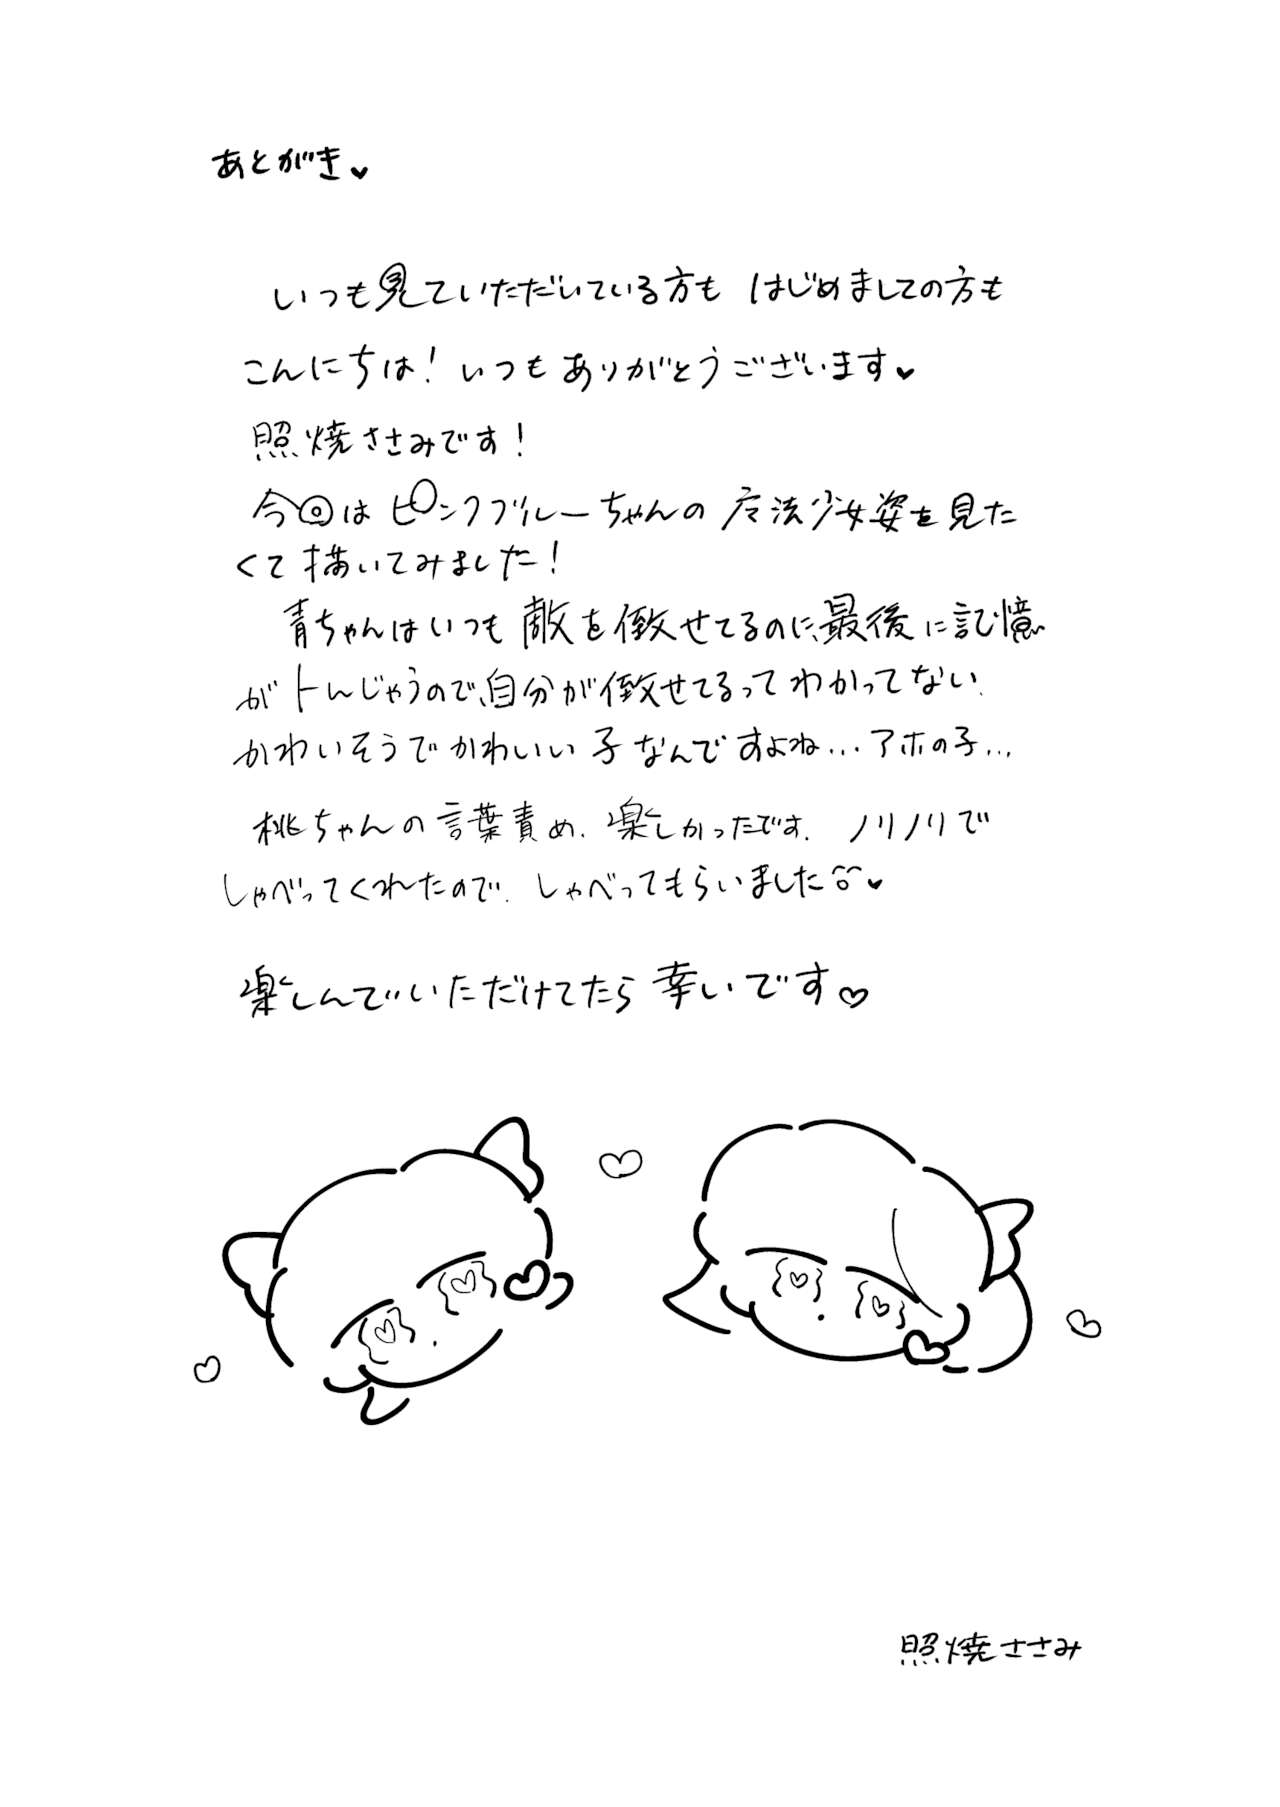 あとがき♥
いつも見ていただいている方も はじめましての方も
こんにちは！いつもありがとうございます♥
照焼ささみです！
今回はピンクブルーちゃんの魔法少女姿を見た
くて描いてみました！
青ちゃんはいつも敵を倒せてるのに、最後に記憶
がトんじゃうので、自分が倒せてるってわかってない、
かわいそうでかわいい子なんですよね…アホの子…
桃ちゃんの言葉責め、楽しかったです。ノリノリで
しゃべってくれたので、しゃべってもらいました♥
楽しんでいただけてたら幸いです♡
照焼ささみ